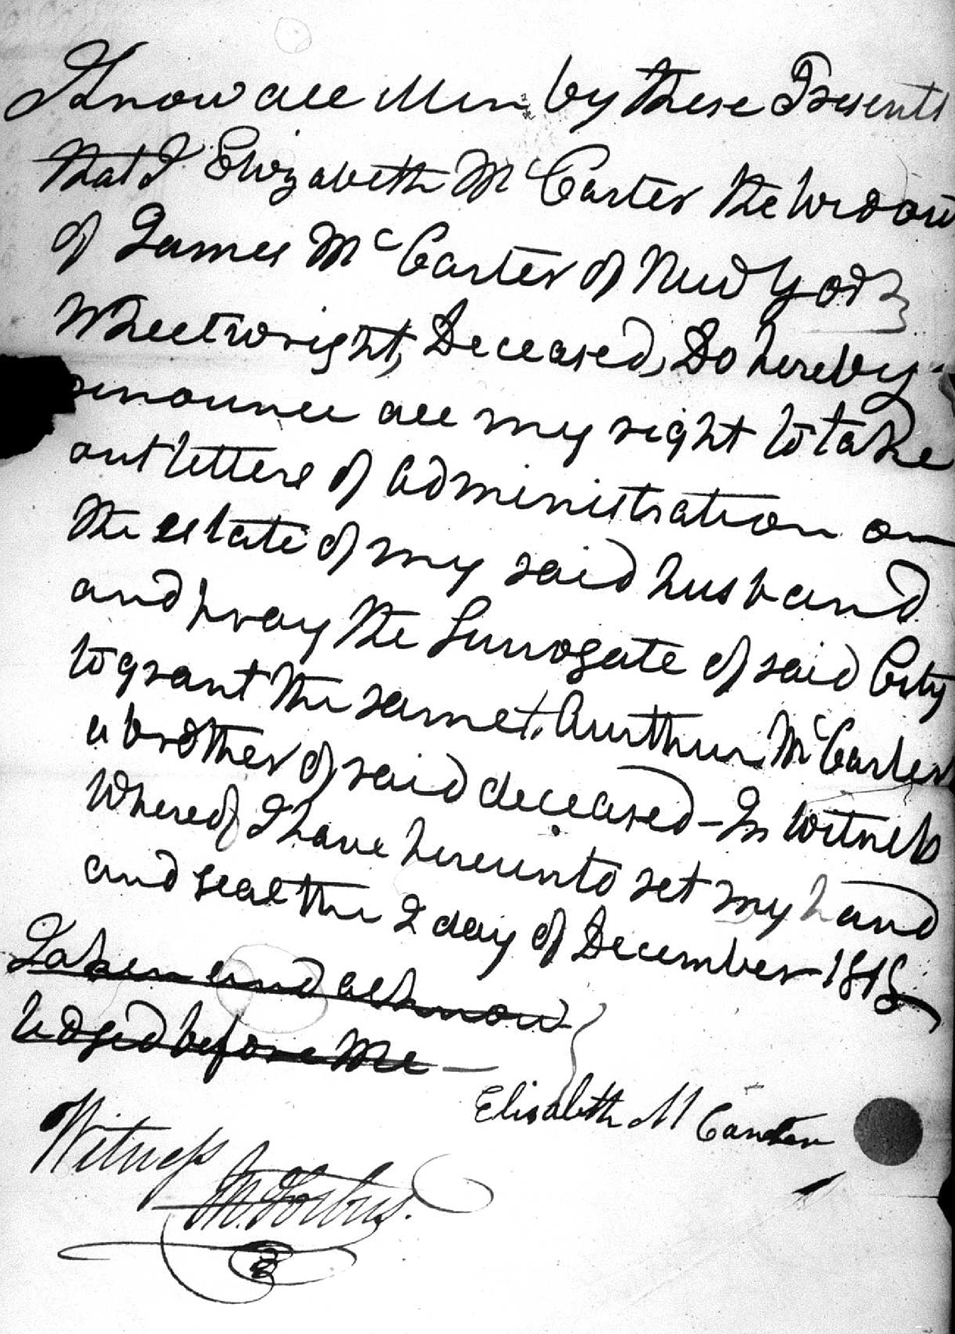 Know all Men by these Presents
that I Elizabeth Mc Carter the Widow
of James Mc Carter of New York
Wheelwright, Deceased, Do hereby
renounce all my right to take
out letters of administration on
the estate of my said husband
and pray the Surrogate of said City
to grant the same to Aurthur Mc Carter
a brother of said deceased - In Witness
Whereof I have hereunto set my hand
and seal the 2 day of December 1818
Taken and acknow
ledged before me
Elisabeth M Carter
Witness